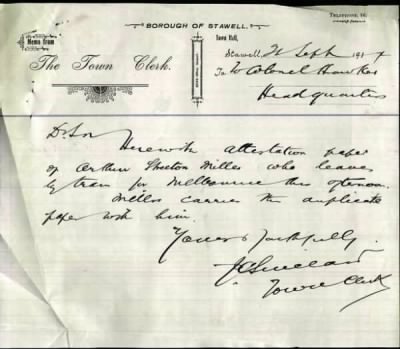 BOROUGH OF STAWELL.
TELEPHONE
Memo from
The Town Clerk.
Town Hall,
Stawell, 21 Sept 1917
To Colonel Hawker
Headquarters
Dr Sir
Herewith Attestation paper
of Arthur Skeeton Miller who leaves
by train for Melbourne this afternoon.
Miller carries the duplicate
paper with him.
Yours faithfully
Town Clerk